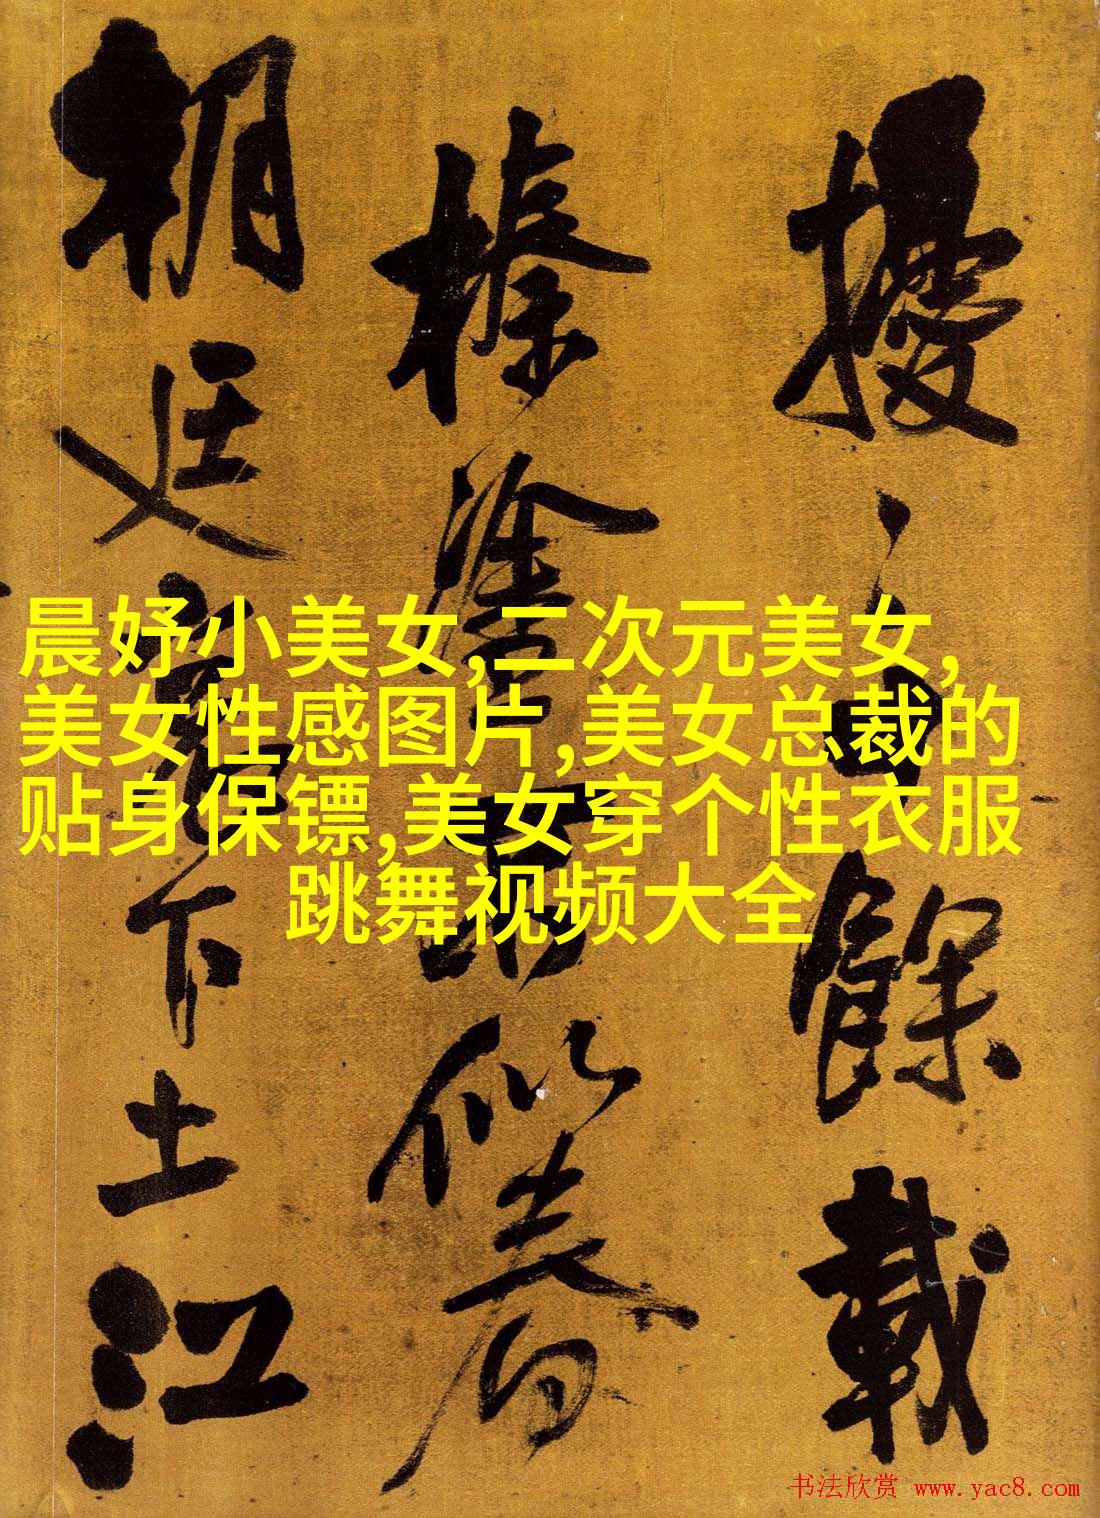 擾餘載
榛塗
朝廷下土江
晨妤小美女,二次元美女,
美女性感图片,美女总裁的
贴身保镖,美女穿个性衣服
跳舞视频大全
书法欣赏 www.yac8.com